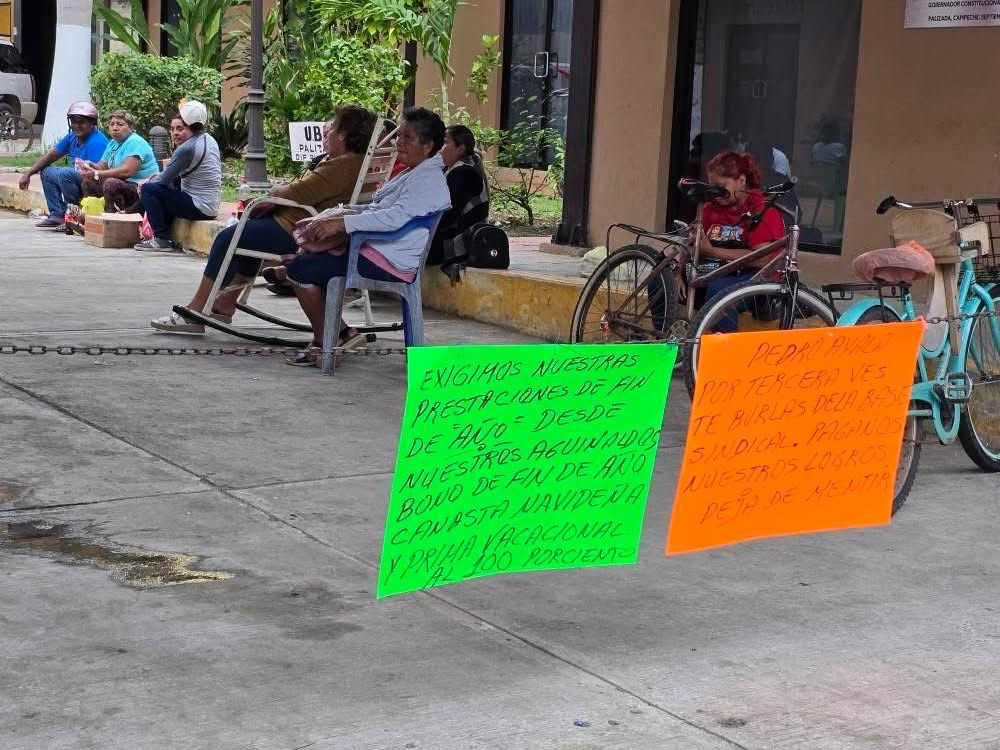 GOBERNADOR CONSTITUCIONAL
PALIZADA, CAMPECHE; SEPTIEM
UB
PALIZ
EXIGIMOS NUESTRAS
PRESTACIONES DE FIN
DE "AÑO" = DESDE
NUESTROS AGUINALDOS
BONO DE FIN DE AÑO
CANASTA NAVIDEÑA
Y PRIMA VACACIONAL
AL 100 PORCIENTO
PEDRO AYALA
POR TERCERA VES
TE BURLAS DELA BASE
SINDICAL. PAGANOS
NUESTROS LOGROS
DEJA DE MENTIR